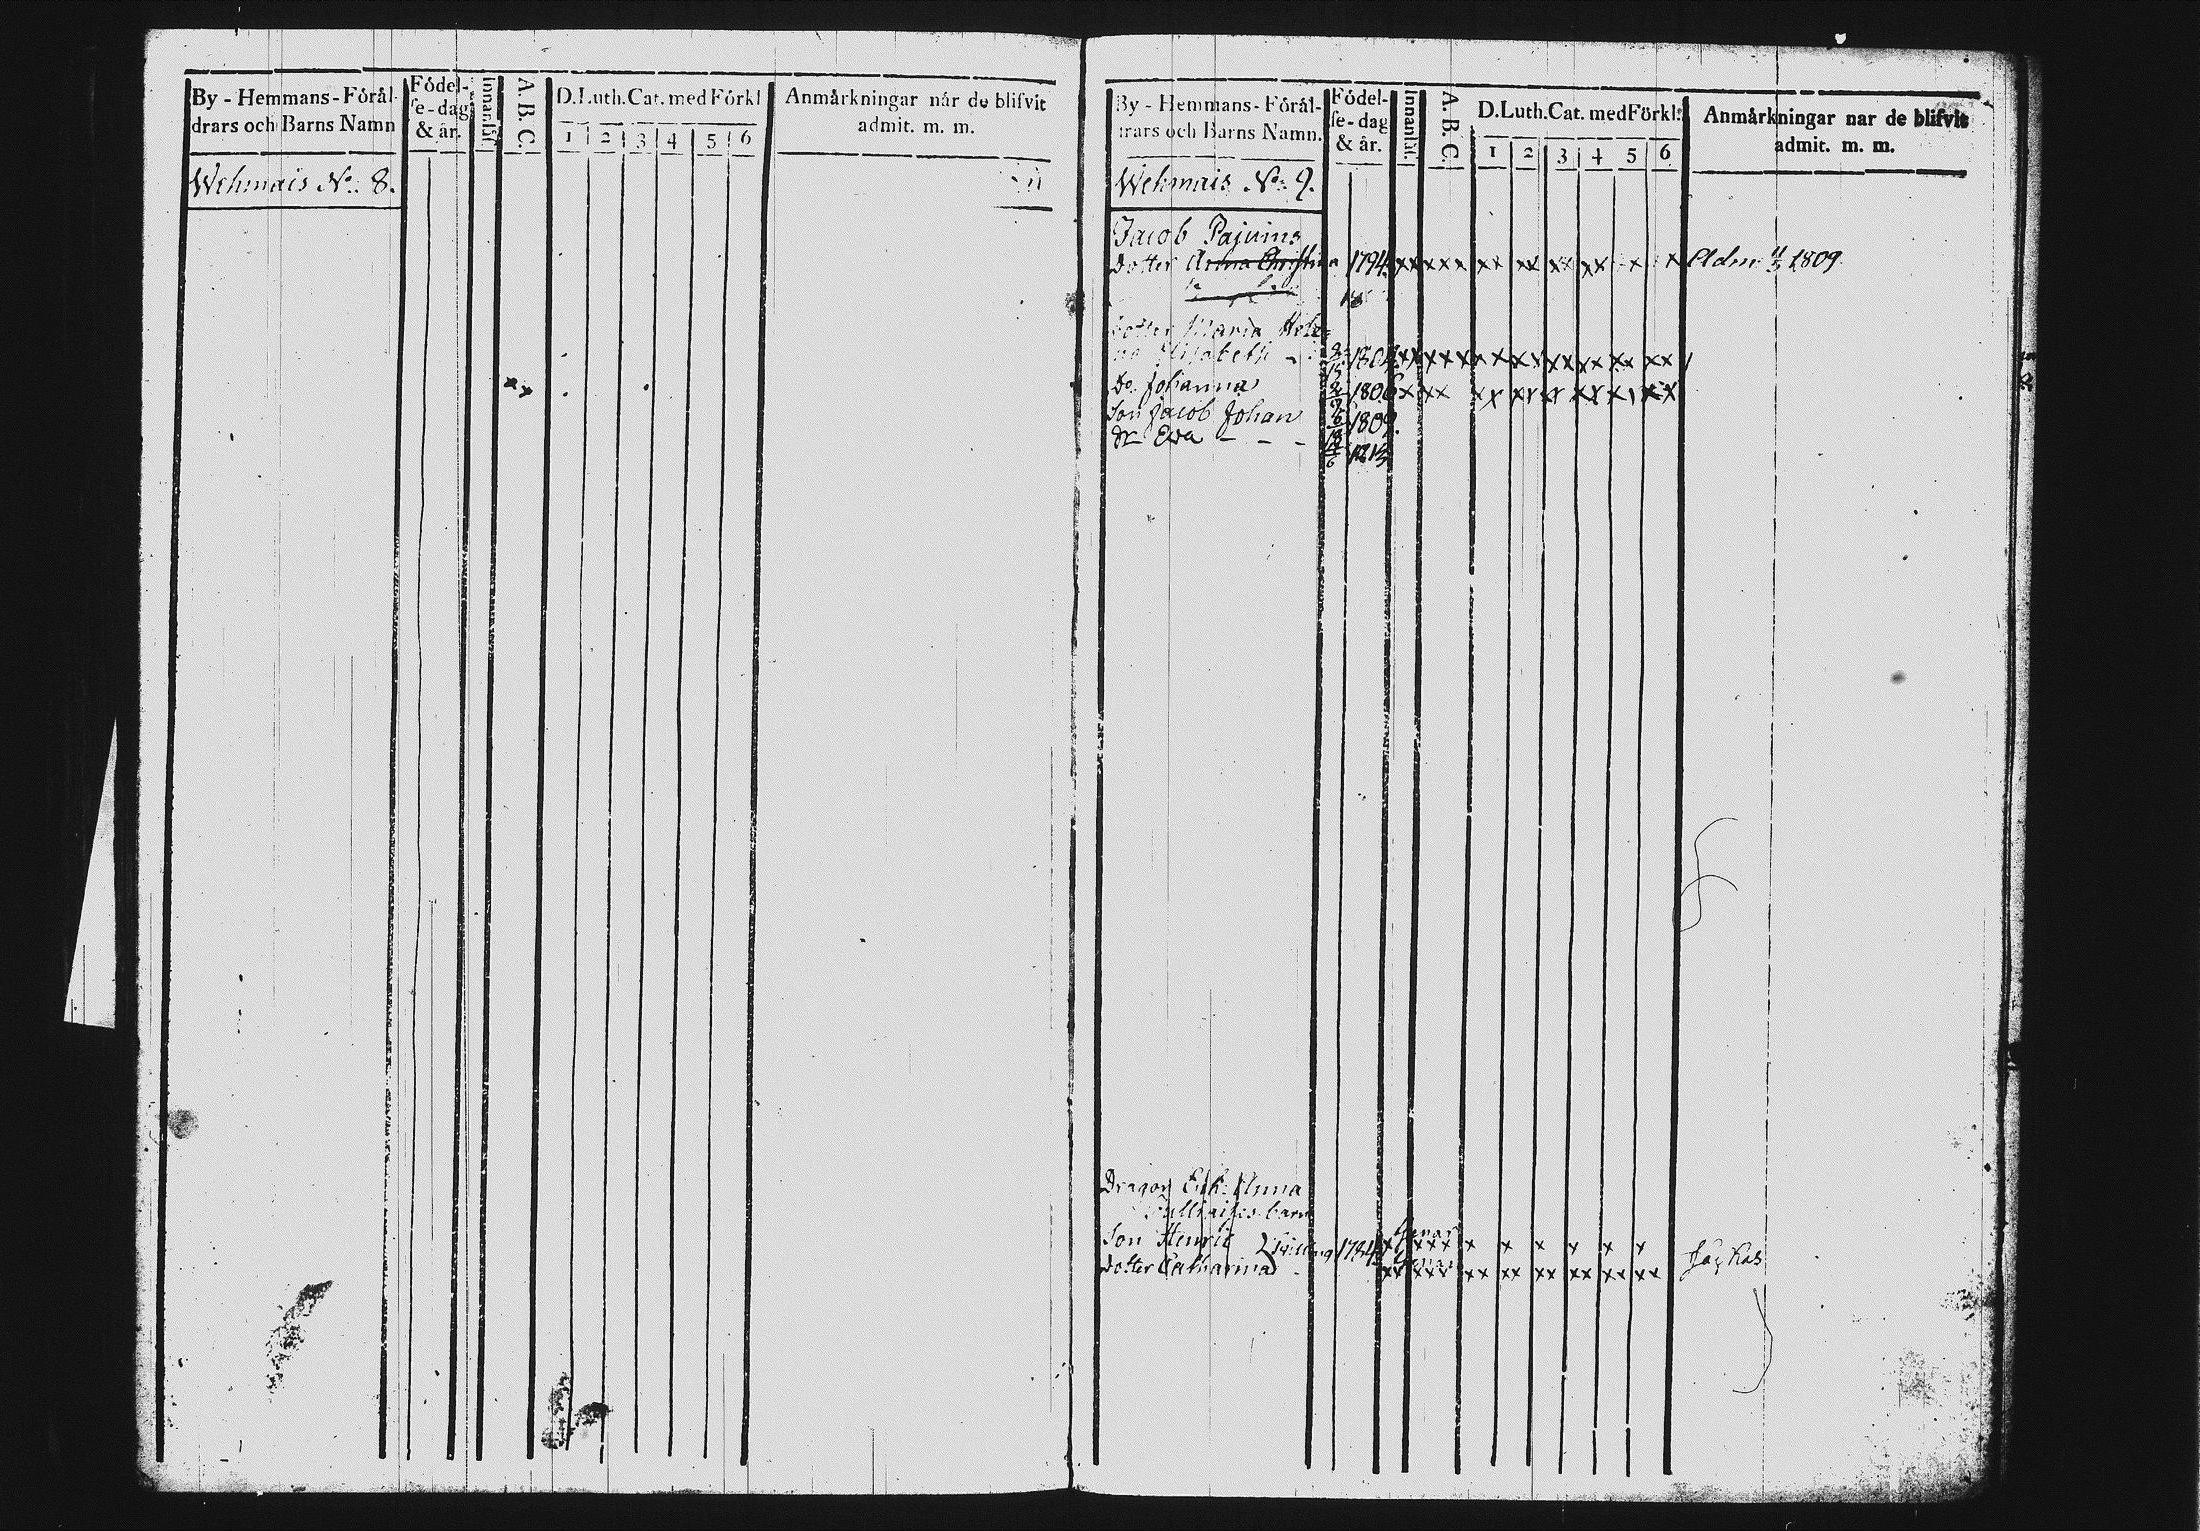 By - Hemmans - Förål-
drars och Barns Namn
Födel-
se - dag
& år.
Innanläs.
A. B. C.
D. Luth. Cat. med Förkl
1 2 3 4 5 6
Anmårkningar når de blifvit
admit. m. m.
Wehmais No. 8.
By - Hemmans - Förål-
drars och Barns Namn.
Födel-
se - dag
& år.
Innanläs.
A. B. C.
D. Luth. Cat. med Förkl:
1 2 3 4 5 6
Anmårkningar når de blifvit
admit. m. m.
Wehmais No. 9.
Jacob
Dotter Anna Christina 1794 xx xxx xx xx xx xx x x Adm 1809
Dotter Maria Hele=
na Elisabeth 1804 xx xxx xx xx xx xx xx xx
Do. Johanna 1806 x xx xx xx xx xx x xx
Son Jacob Johan 1809.
Dr Eva - - -
Dragon Erik Anna
barn
Son Henric 1784 x xxx x x x x x x
Dotter Catharina xx xxx xx xx xx xx xx xx